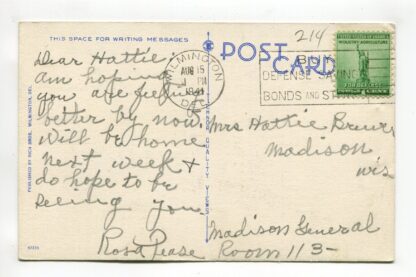 THIS SPACE FOR WRITING MESSAGES
Dear Hattie I
am hoping
you are feeling
better by now
will be home
next week &
do hope to be
seeing you
Rosa Pease
PUBLISHED BY RICH BROS. WILMINGTON, DEL.
WILMINGTON
AUG 15
PM
1941
DEL.
POST CARD
214
BUY
DEFENSE SAVINGS
BONDS AND
UNITED STATES OF AMERICA
INDUSTRY AGRICULTURE
FOR DEFENSE
Mrs Hattie
Madison
Wis
Madison General
Room 113-